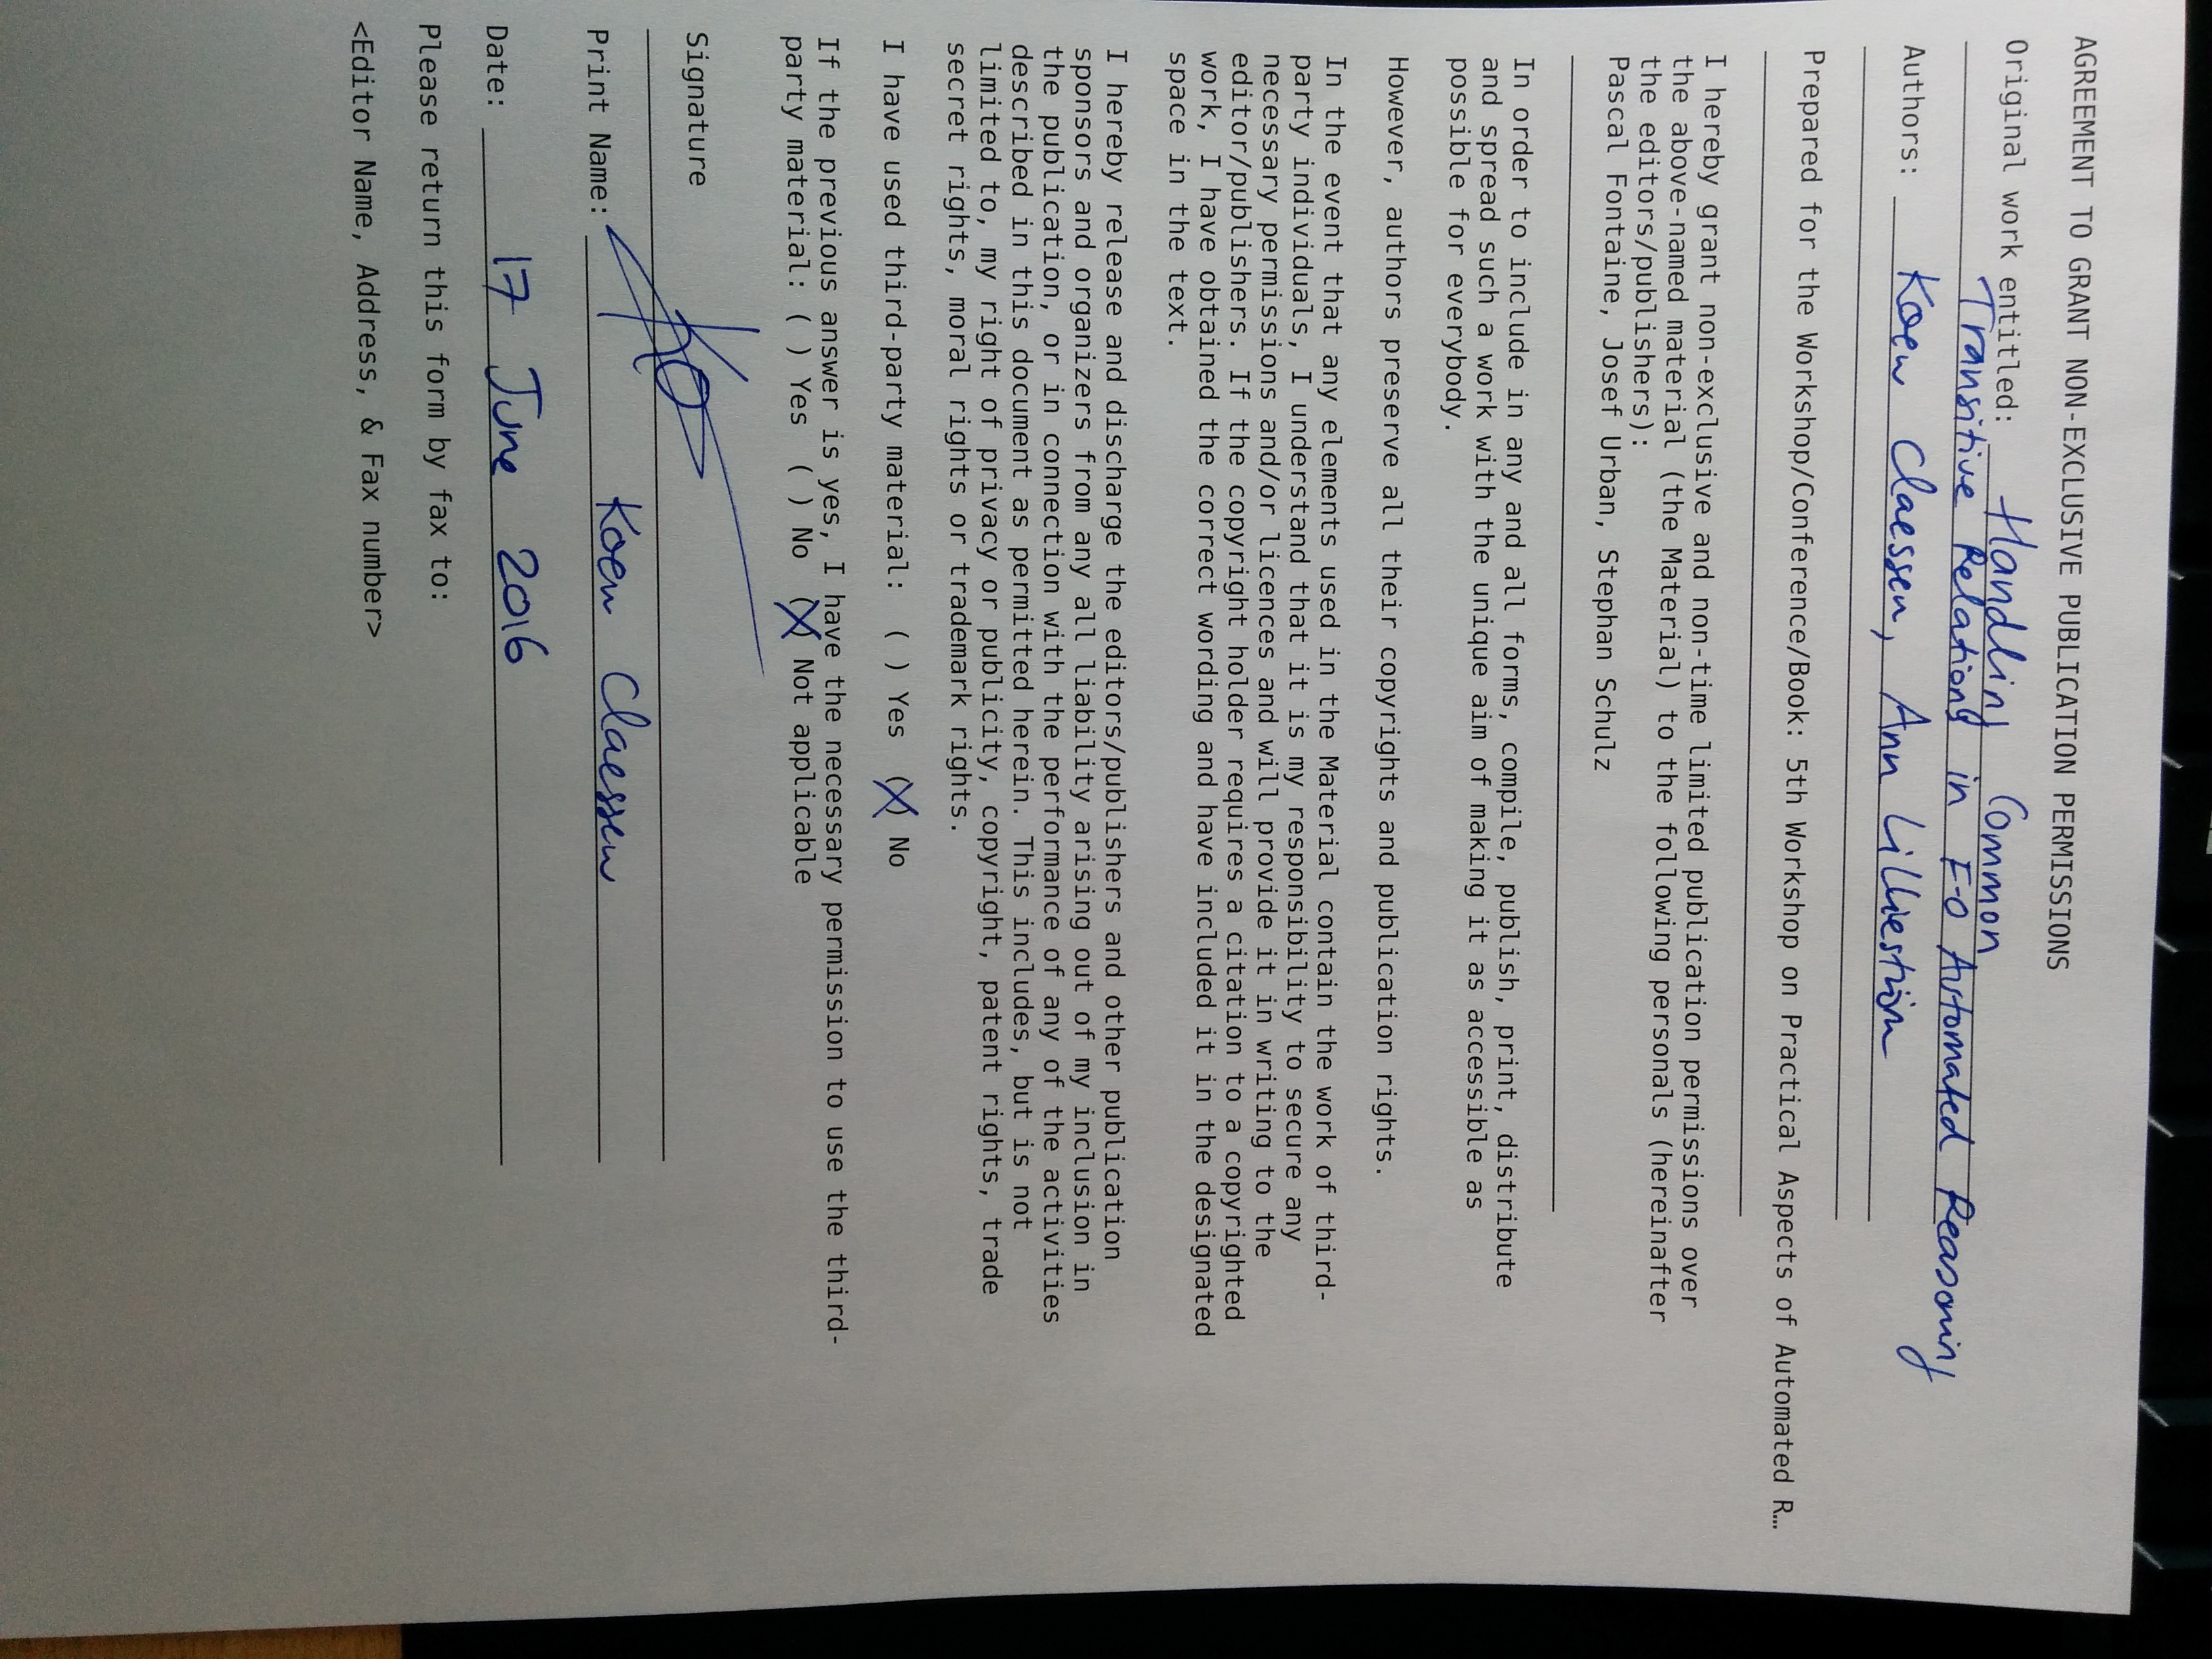 AGREEMENT TO GRANT NON-EXCLUSIVE PUBLICATION PERMISSIONS
Original work entitled: Handling Common
Transitive Relations in F-O Automated Reasoning
Authors: Koen Claessen, Ann Lillieström
Prepared for the Workshop/Conference/Book: 5th Workshop on Practical Aspects of Automated R…
I hereby grant non-exclusive and non-time limited publication permissions over
the above-named material (the Material) to the following personals (hereinafter
the editors/publishers):
Pascal Fontaine, Josef Urban, Stephan Schulz
In order to include in any and all forms, compile, publish, print, distribute
and spread such a work with the unique aim of making it as accessible as
possible for everybody.
However, authors preserve all their copyrights and publication rights.
In the event that any elements used in the Material contain the work of third-
party individuals, I understand that it is my responsibility to secure any
necessary permissions and/or licences and will provide it in writing to the
editor/publishers. If the copyright holder requires a citation to a copyrighted
work, I have obtained the correct wording and have included it in the designated
space in the text.
I hereby release and discharge the editors/publishers and other publication
sponsors and organizers from any all liability arising out of my inclusion in
the publication, or in connection with the performance of any of the activities
described in this document as permitted herein. This includes, but is not
limited to, my right of privacy or publicity, copyright, patent rights, trade
secret rights, moral rights or trademark rights.
I have used third-party material: ( ) Yes (X) No
If the previous answer is yes, I have the necessary permission to use the third-
party material: ( ) Yes ( ) No (X) Not applicable
Signature
Print Name: Koen Claessen
Date: 17 June 2016
Please return this form by fax to:
<Editor Name, Address, & Fax number>